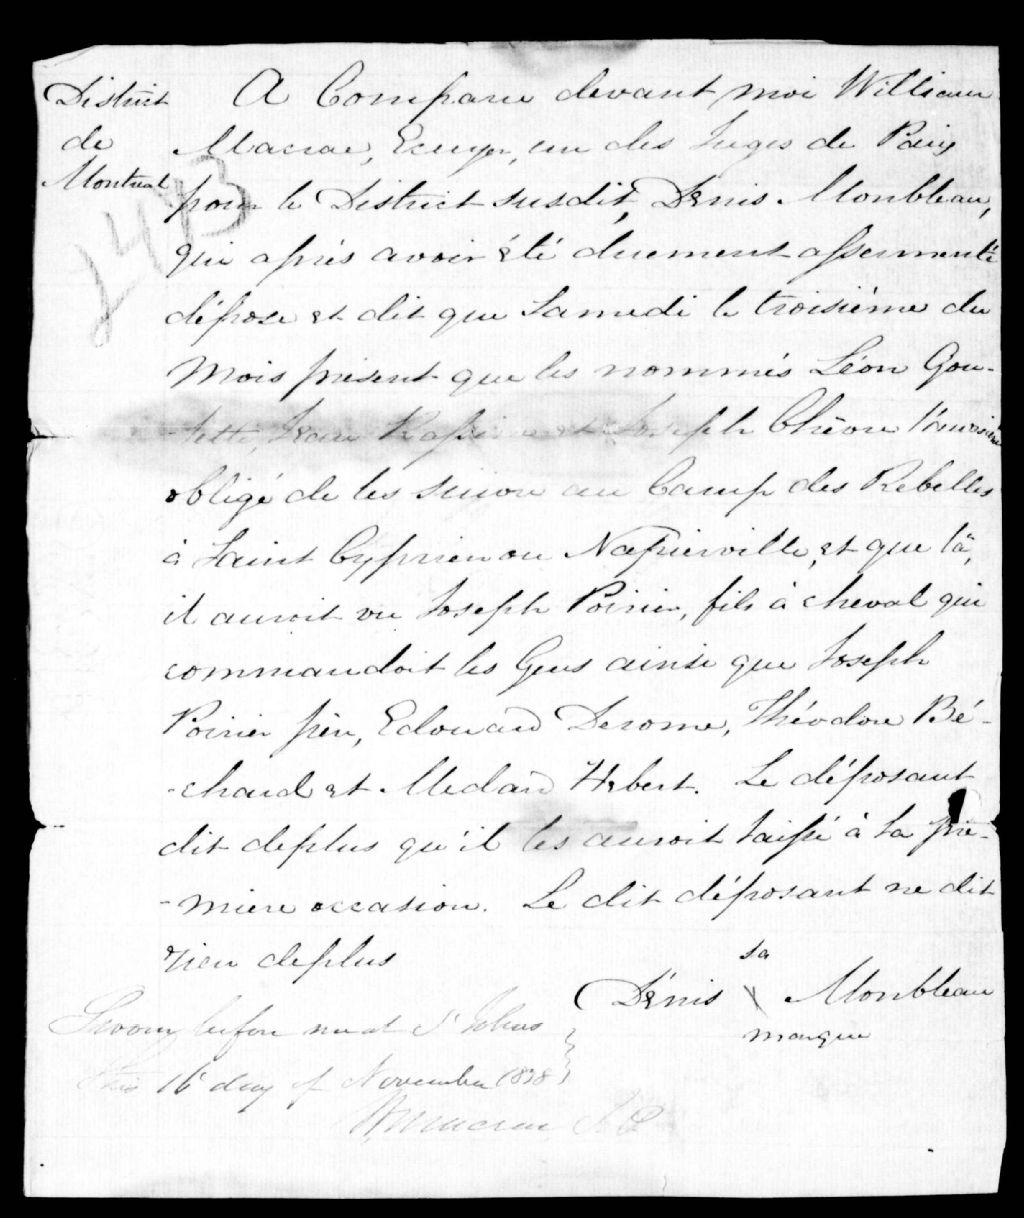 District
de
Montreal
2443
A Comparu devant moi William
Macrae, Ecuyer, un des Juges de Paix
pour le District susdit, Denis Monbleau,
qui après avoir été duement assermenté
dépose et dit que Samedi le troisième du
Mois présent que les nommés Léon Gou-
-lette, Jean et Joseph l'auroient
obligé de les suivre au Camp des Rebelles
à Saint Cyprien ou Napierville, et que là,
il auroit vu Joseph Poirier, fils à cheval qui
commandoit les Gens ainsi que Joseph
Poirier père, Edouard Derome, Théodore Bé-
-chard et Medard Hebert. Le déposant
dit deplus qu'il les auroit laissé à la pre-
-mière occasion. Le dit déposant ne dit
rien deplus
sa
Denis X Monbleau
marque
Sworn before me at St Johns
this 16 day of November 1838
Wm Macrae J.P.